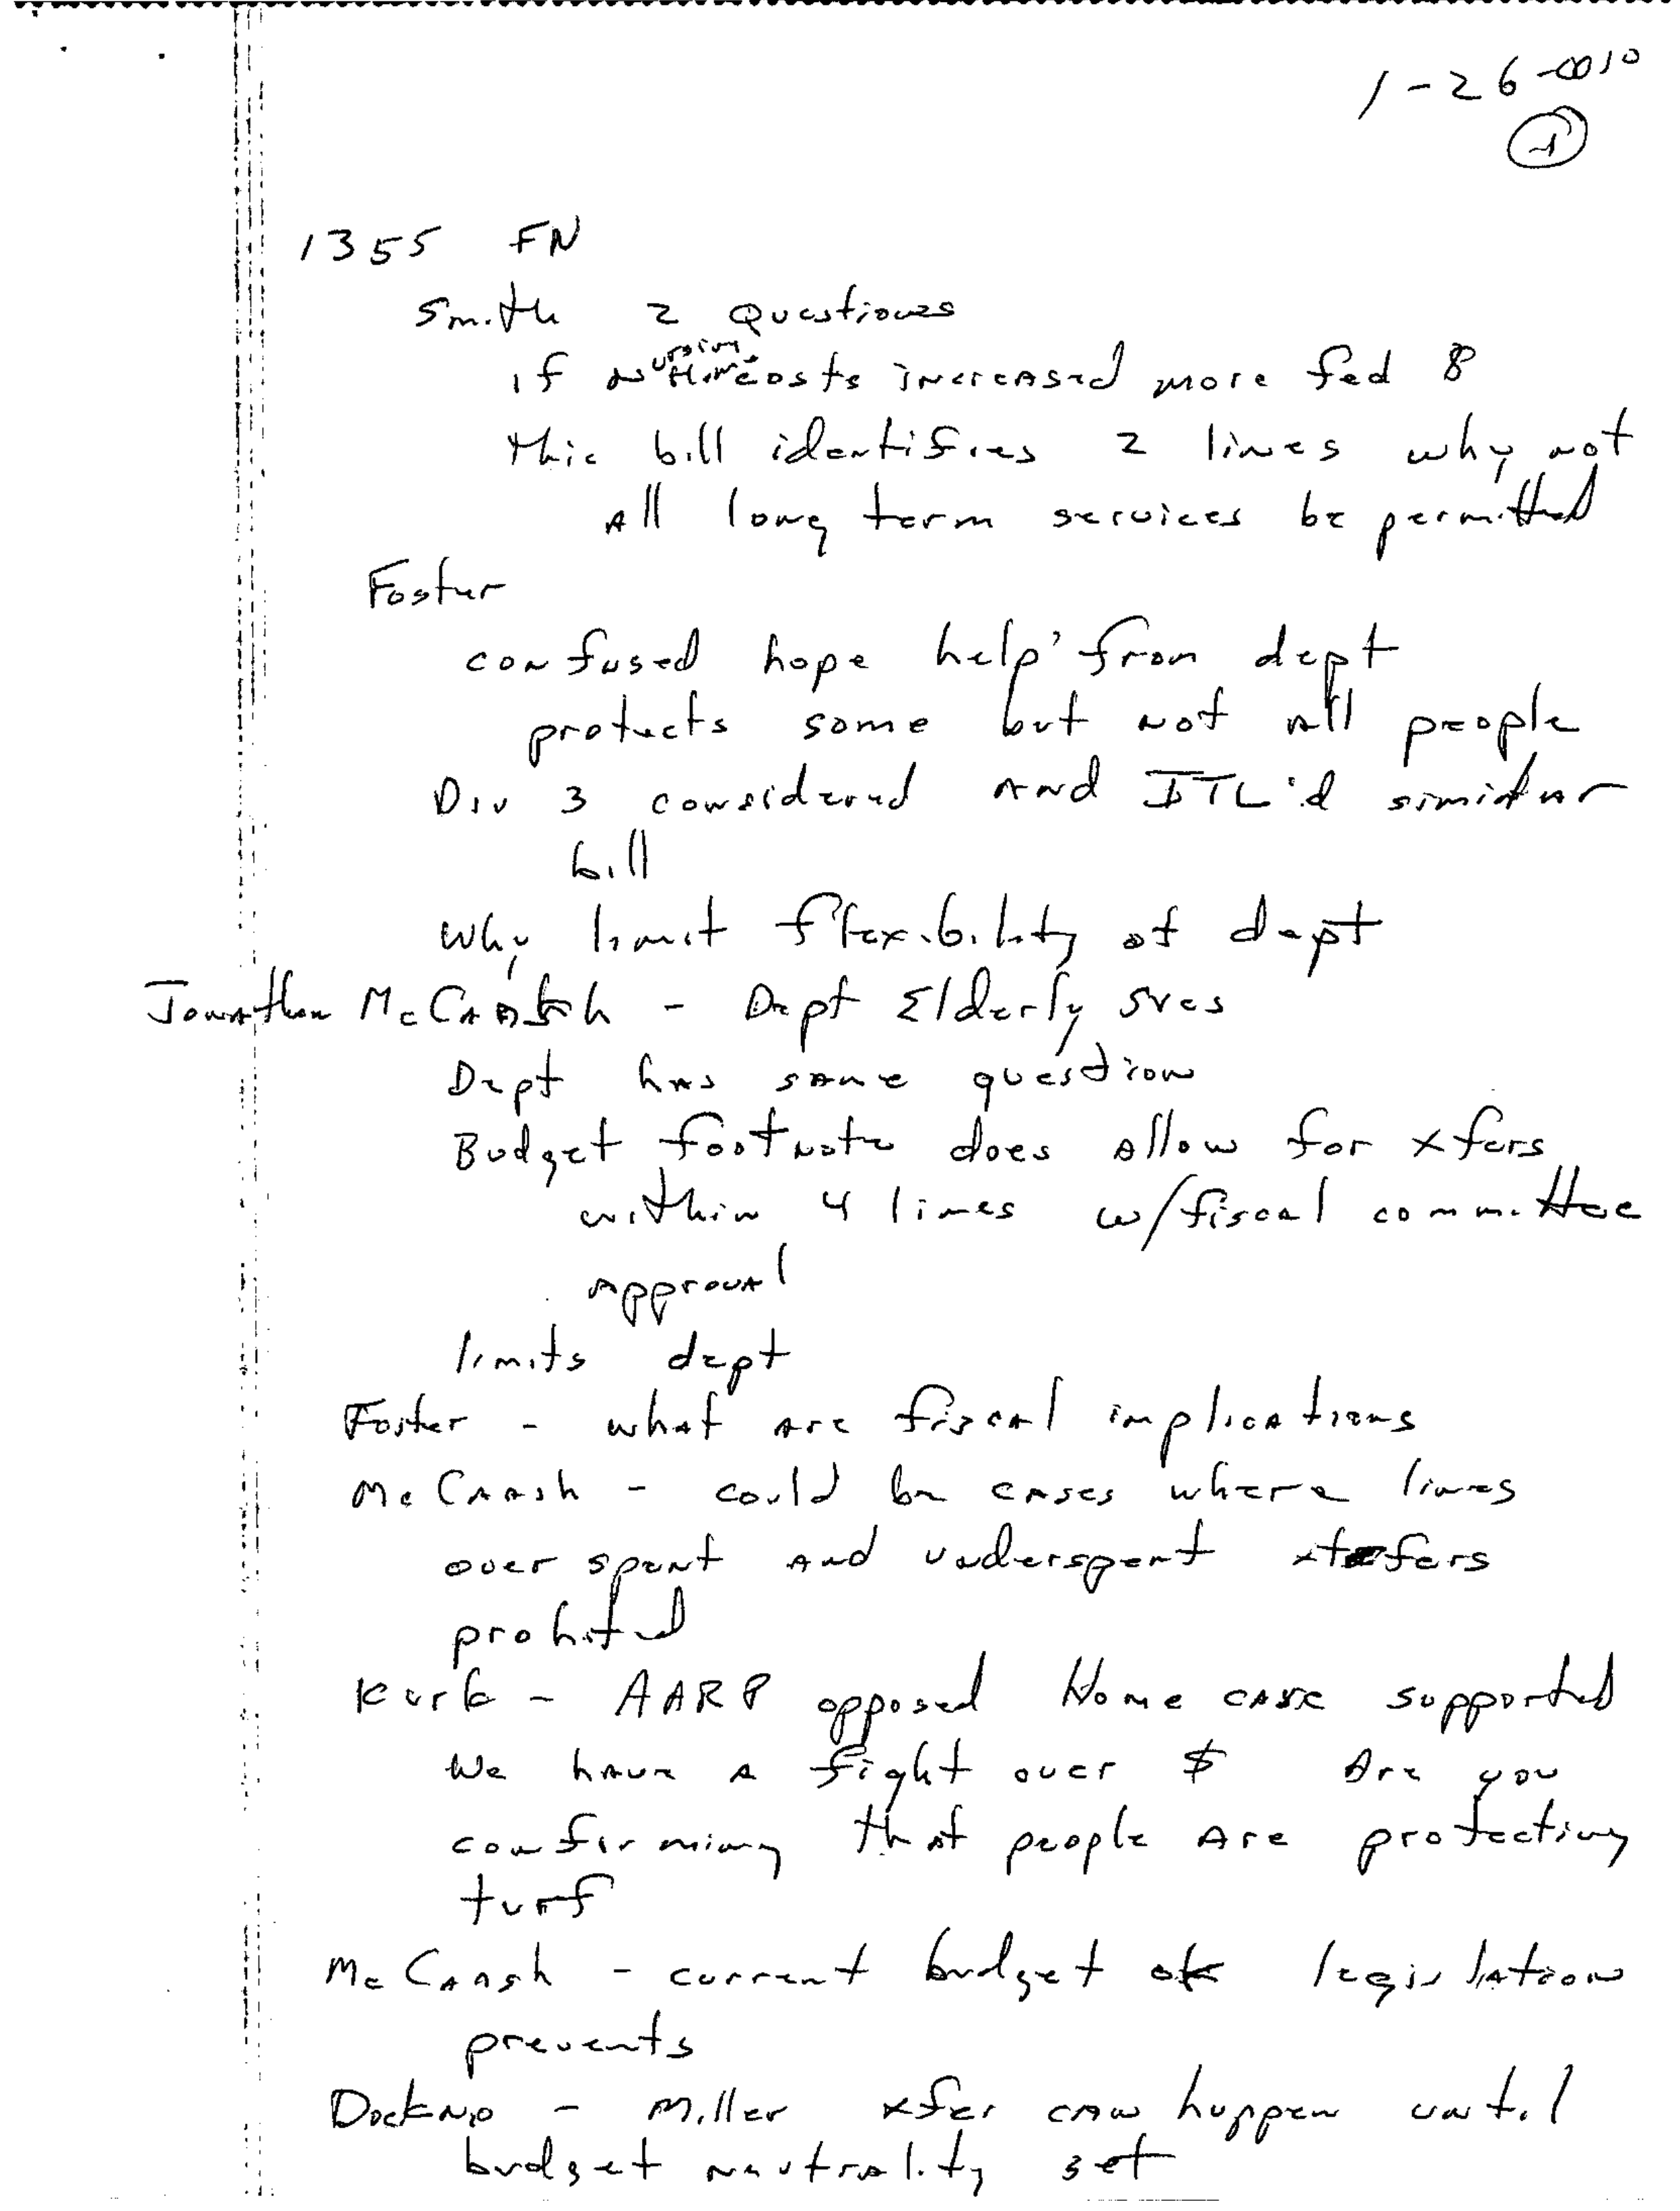 1-26-2010
1
1355 FN
Smith 2 Questions
if nursing costs increased more fed $
this bill identifies 2 lines why not
all long term services be permitted
Foster
confused hope help from dept
protects some but not all people
Div 3 considered and ITL'd similar
bill
Why limit flexibility of dept
Jonathan McCrash - Dept Elderly Svcs
Dept has same question
Budget footnote does allow for xfers
within 4 lines w/fiscal committee
approval
limits dept
Foster - what are fiscal implications
McCrash - could be cases where lines
over spent and underspent xfers
prohited
Kurk - AARP opposed Home care supported
We have a fight over $ Are you
confirming that people are protecting
turf
McCrash - current budget legislation
prevents
- Miller xfer can happen until
budget neutrality set